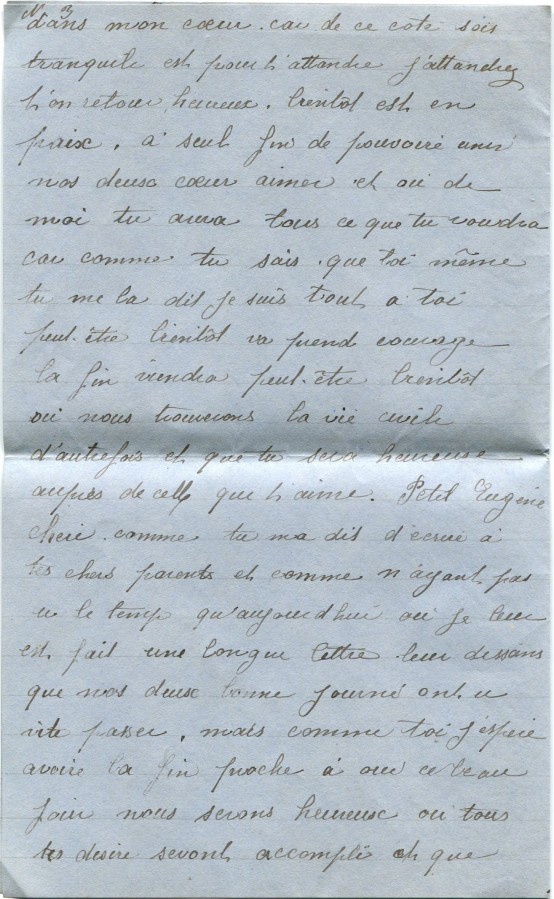 N 3
dans mon cœur. car de ce coté sois
tranquile est pour t'attandre j'attandrez
t'on retour, heureux. bientôt est en
paix, a seul fin de pouvoire unir
nos deux cœur aimer et ou de
moi tu aura tous ce que tu voudra
car comme tu sais. que toi même
tu me la dit je suis tout a toi
peut-être bientôt va prend courage
la fin viendra peut-être bientôt
ou nous trouverons la vie civile
d'autrefois et que tu sera heureuse
auprès de celle que t'aime. Petit Eugène
cheri. comme tu ma dit d'ecrire à
tes chers parents et comme n'ayant pas
u le temp qu'aujourd'hui ou je leur
est fait une longue lettre leur dissans
que nos deux bonne journé ont u
vite passer, mais comme toi j'espère
avoire la fin proche à oui ce beau
jour nous serons heureux ou tous
tes désire seront accompli et que